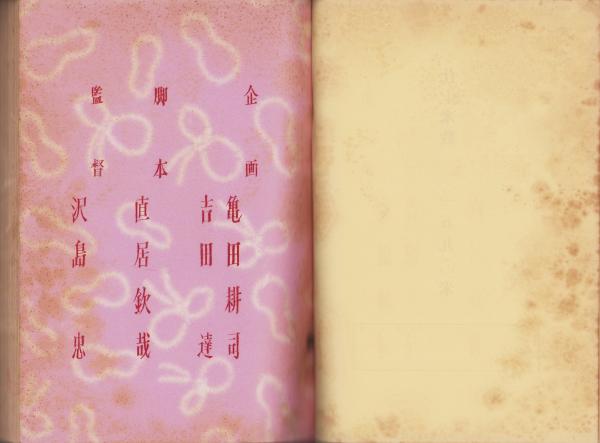 企画
亀田耕司
吉田達
脚本
直居欽哉
監督
沢島忠